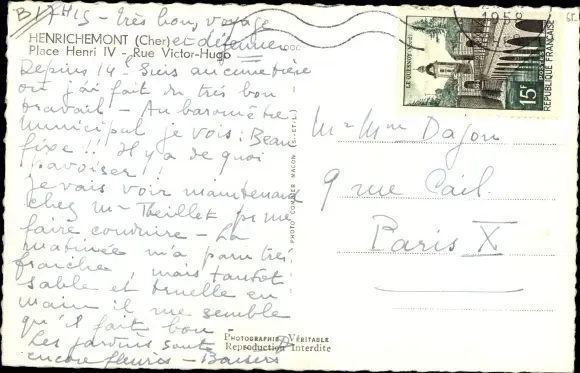 B/ 7H15 - très bon voyage
et détenue
HENRICHEMONT (Cher)
Place Henri IV - Rue Victor-Hugo
Depuis 14 h suis au cimetière
où j'ai fait du très bon
travail - Au baromètre
municipal je vois : Beau
fixe !! Il y a de quoi
pavoiser !
je vais voir maintenant
chez Mr Theillet pr me
faire conduire - La
matinée m'a paru très
fraîche, mais tantôt
sable et truelle en
main il me semble
qu'il fait bon
Les jardins sont
encore fleuris - Baisers
PHOTOGRAPHIE VÉRITABLE
Reproduction Interdite
PHOTO COMBIER MACON (S.-ET-L.)
1958
LE QUESNOY
15F
POSTES
RÉPUBLIQUE FRANÇAISE
Mr Mme Dajon
9 rue Cail
Paris X